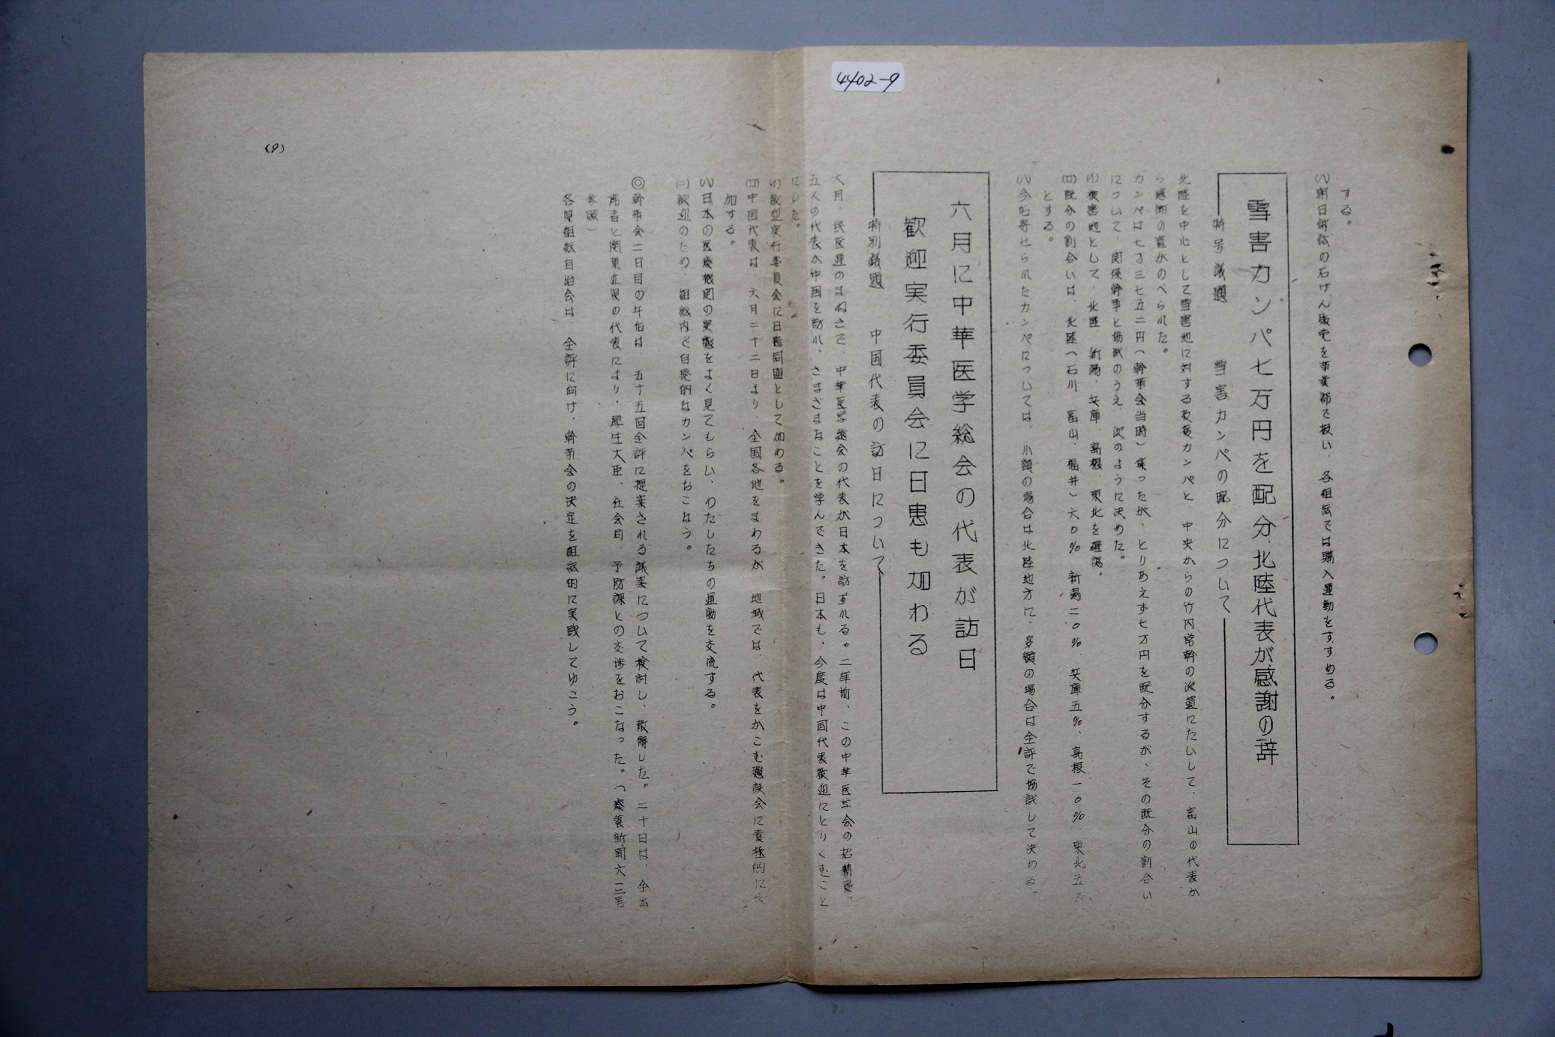 4402-9
する。
(ハ)朝日解放の石けん販売を事業部で扱い、各組織では購入運動をすすめる。
雪害カンパ七万円を配分、北陸代表が感謝の辞
特号議題 雪害カンパの配分について
北陸を中心として雪害地に対する救援カンパと、中央からの竹内常幹の派遣にたいして、富山の代表か
ら感謝の意がのべられた。
カンパは七万三七五二円(幹事会当時)集ったが、とりあえず七万円を配分するが、その配分の割合い
について、関係幹事と協議のうえ、次のように決めた。
(イ)被害地として、北陸、新潟、兵庫、島根、東北を確認、
(ロ)配分の割合いは、北陸(石川、富山、福井)六〇%、新潟二〇%、兵庫五%、島根一〇%、東北五%
とする。
(ハ)今后寄せられたカンパについては、小額の場合は北陸地方に、多額の場合は全評で協議して決める。
六月に中華医学総会の代表が訪日
歓迎実行委員会に日患も加わる
特別議題 中国代表の訪日について
六月、民医連のまねきで、中華医学総会の代表が日本を訪ずれる。二年前、この中華医学会の招請で、
五人の代表が中国を訪れ、さまざまなことを学んできた。日本も、今度は中国代表歓迎にとりくむこと
にした。
(イ)歓迎実行委員会に日患同盟として加わる。
(ロ)中国代表は、六月二十二日より、全国各地をまわるが、地域では、代表をかこむ懇談会に積極的に参
加する。
(ハ)日本の医療機関の実態をよく見てもらい、わたしたちの運動を交流する。
(ニ)歓迎のため、組織内で自発的なカンパをおこなう。
◎幹事会二日目の午后は、五十五回全評に提案される議案について検討し、散解した。二十日は、全出
席者と関東近県の代表により、厚生大臣、社会局、予防課との交渉をおこなった。(療養新聞六二三号
参照)
各県組織自治会は、全評に向け、幹事会の決定を組織的に実践してゆこう。
(9)